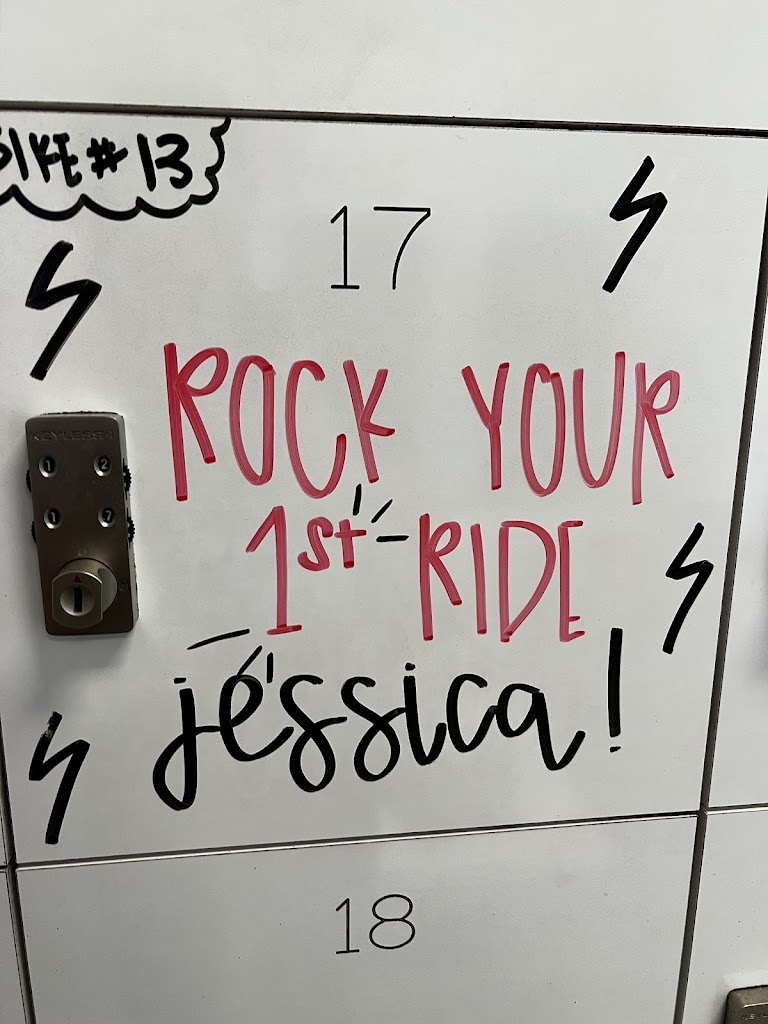 BIKE #13
17
ROCK YOUR
1st RIDE
jessica!
KEYLESS
1 2
1 7
18